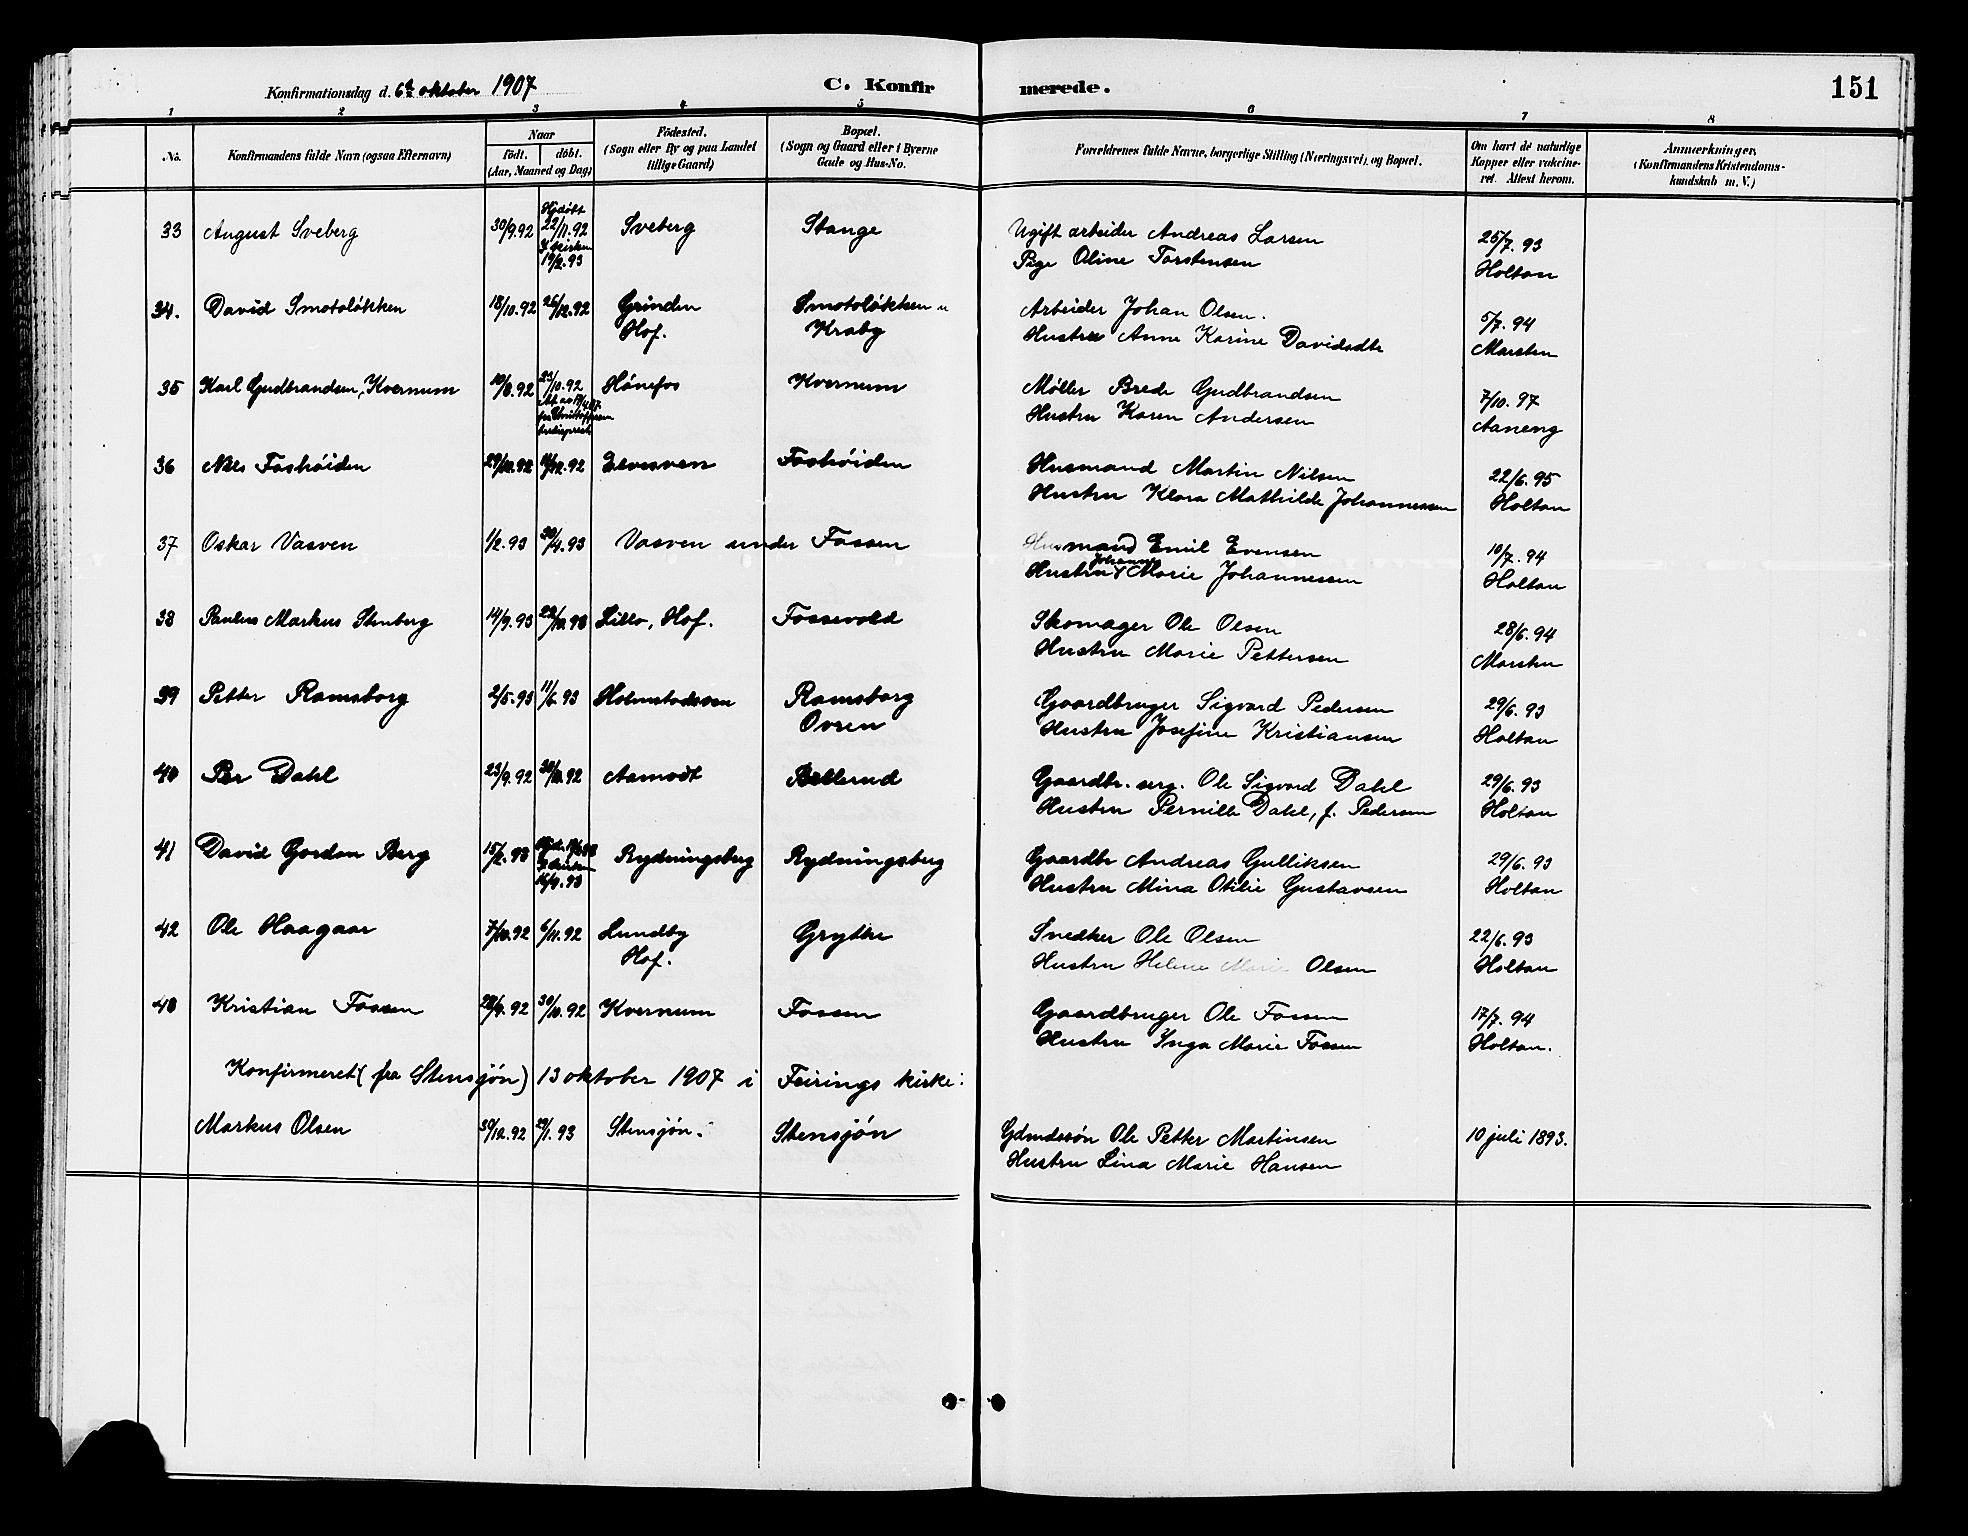 Konfirmationsdag d. 6te oktober 1907 C. Konfir merede. 151
1 2 3 4 5 6 7 8
No. Konfirmandens fulde Navn (ogsaa Efternavn) Naar födt. döbt. (Aar, Maaned og Dag) Födested. (Sogn eller By og paa Landet tillige Gaard) Bopæl. (Sogn og Gaard eller i Byerne Gade og Hus-No. Forældrenes fulde Navne, borgerlige Stilling (Næringsvei), og Bopæl. Om havt de naturlige Kopper eller vakcineret. Attest herom. Anmærkninger. (Konfirmandens Kristendomskundskab m. V.)
33 August Sveberg 30/9.92 Hjdöbt 22/11.92 i kirken 19/2.93 Sveberg Stange Ugift arbeider Andreas Larsen 25/7.93
Pige Oline Torstensen Holtan
34. David Smotoløkken 18/10.92 26/12.92 Grinden Smotoløkken u Arbeider Johan Olsen. 5/7.94
Hof. Kraby Hustru Anne Karine Davidsdtr Marsten
35 Karl Gudbrandsen, Kvernum 10/8.92 23/10.92 Hönefos Kvernum Møller Brede Gudbrandsen 7/10.97
Hustru Karen Andersen Aaneng
36 Nils Foshöiden 29/10.92 11/12.92 Elvesven Foshöiden Husmand Martin Nilsen 22/6.95
Hustru Klara Mathilde Johannessen Holtan
37 Oskar Vasven 1/2.93 30/4.93 Vasven under Fossen Husmand Emil Evensen 10/7.94
Johanne
Hustru Marie Johannessen Holtan
38 Paulus Markus Stenberg 14/9.93 22/10.93 Lillo, Hof. Fossevold Skomager Ole Olsen 28/6.94
Hustru Marie Pettersen Marsten
39 Petter Ramsborg 2/5.93 11/6.93 Holmstadsven Ramsborg Gaardbruger Sigvard Pedersen 29/6.93
Ovren Hustru Josefine Kristiansen Holtan
40 Per Dahl 23/9.92 30/10.92 Aamodt Bellerud Gaardbr. serg. Ole Sigvard Dahl 29/6.93
Hustru Pernille Dahl, f. Pedersen Holtan
41 David Gordon Berg 15/2.93 16/4.93 Rydningsberg Rydningsberg Gaardbr Andreas Gulliksen 29/6.93
Hustru Mina Otilie Gustavsen Holtan
42 Ole Haagaar 7/10.92 6/11.92 Lundby Grythe Snedker Ole Olsen 22/6.93
Hof. Hustru Helene Marie Olsen Holtan
43 Kristian Fossen 28/9.92 30/10.92 Kvernum Fossen Gaardbruger Ole Fossen 17/7.94
Hustru Inga Marie Fossen Holtan.
Konfirmeret (fra Stensjön) 13 oktober 1907 i Feirings kirke:
Markus Olsen 30/12.92 29/1.93 Stensjön. Stensjön Gdmdssön Ole Petter Martinsen 10 juli 1893.
Hustru Lina Marie Hansen